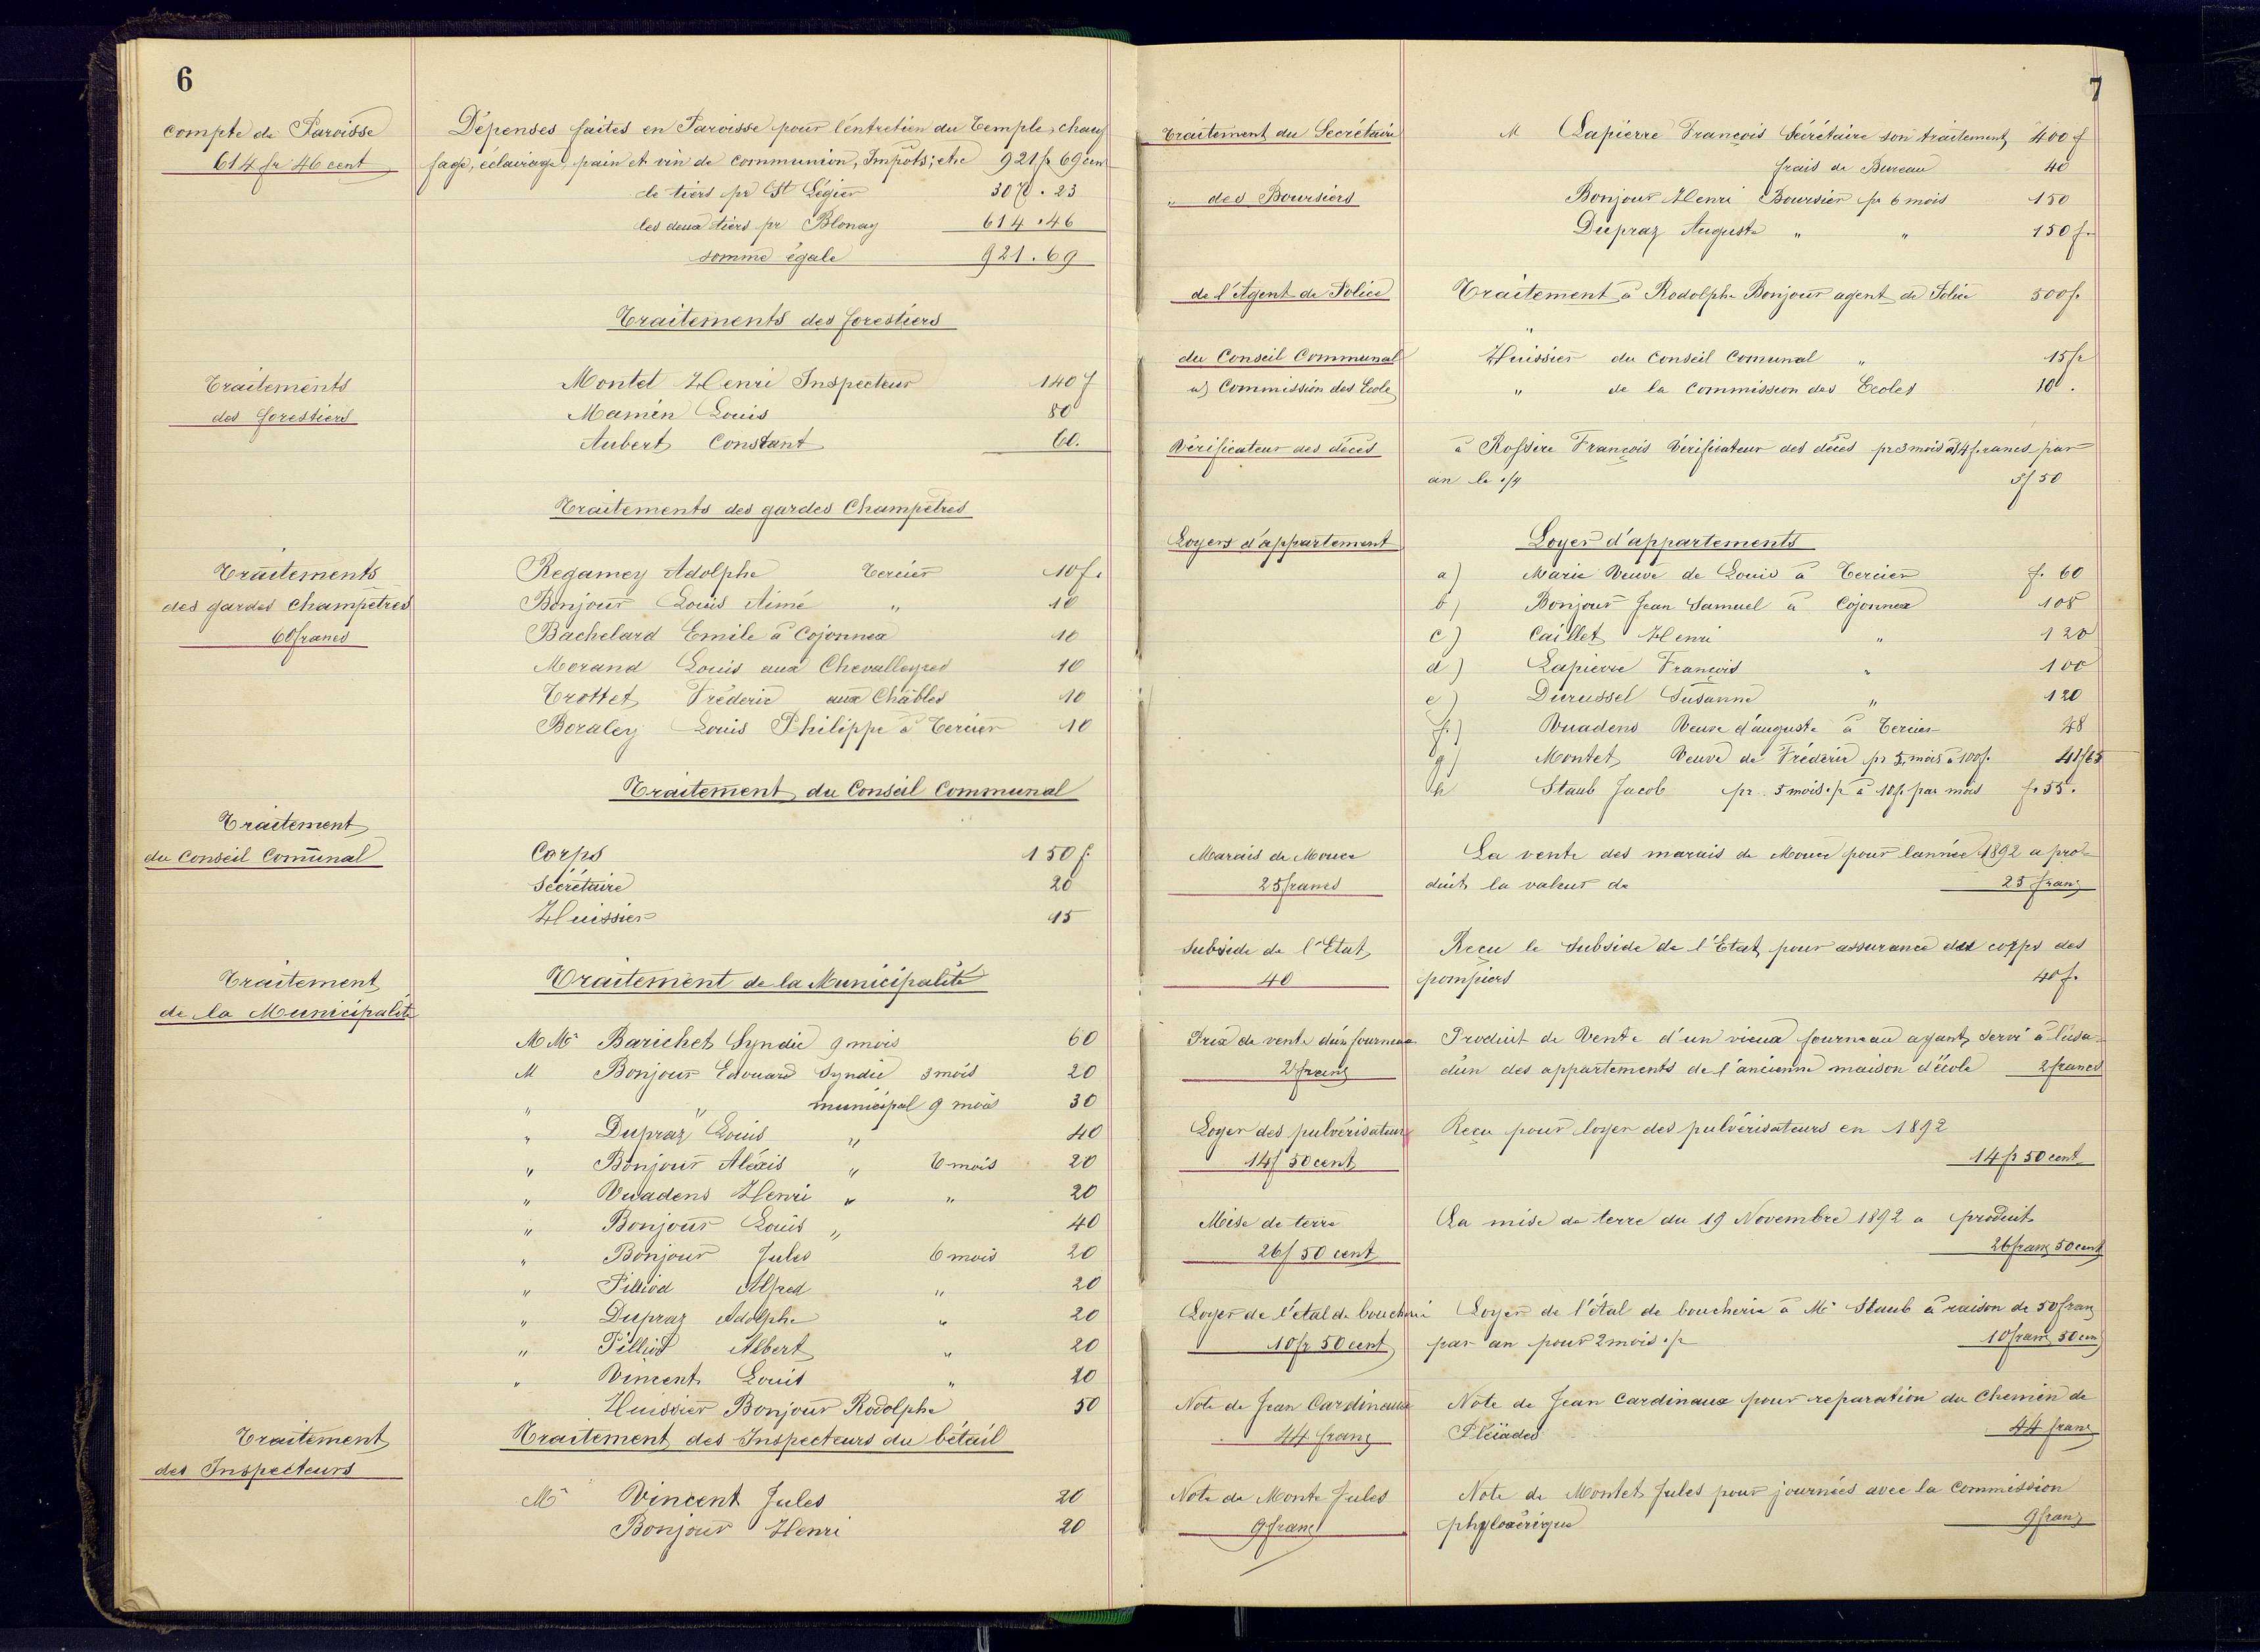 6
compte de Paroisse
614 fr 46 cent
Dépenses faites en Paroisse pour l'entretien du Temple, chauf
fage, éclairage, pain et vin de communion, Impôts, etc 921 fr 69 cent
le tiers pr St Légier 307.23
les deux tiers pr Blonay 614.46
somme égale 921.69
Traitements des forestiers
Traitements
des forestiers
Montet Henri Inspecteur 140 f
Mamin Louis 80
Aubert Constant 60.
Traitements des gardes Champetres
Traitements
des gardes Champetres
60 francs
Regamey Adolphe Tercier 10 f.
Bonjour Louis Aimé " 10
Bachelard Emile à Cojonnex 10
Morand Louis aux Chevalleyres 10
Trottet Fréderic aux Châbles 10
Boraley Louis Philippe à Tercier 10
Traitement du Conseil Communal
Traitement
du Conseil Comunal
Corps 150 f.
Sécrétaire 20
Huissier 15
Traitement
de la Municipalité
Traitement de la Municipalité
M Mr Barichet Syndic 9 mois 60
M Bonjour Edouard Syndic 3 mois 20
" " municipal 9 mois 30
" Dupraz Louis " 40
" Bonjour Aléxis " 6 mois 20
" Vuadens Henri " " 20
" Bonjour Louis " 40
" Bonjour Jules 6 mois 20
" Pilliod Alfred " 20
" Dupraz Adolphe " 20
" Pilliod Albert " 20
" Vincent Louis " 20
Huissier Bonjour Rodolphe 50
Traitement
des Inspecteurs
Traitement des Inspecteurs du bétail
Mr Vincent Jules 20
Bonjour Henri 20
7
Traitement du Secrétaire
M Lapierre François Sécrétaire son traitement 400 f
frais de Bureau 40
" des Boursiers
Bonjour Henri Boursier pr 6 mois 150
Dupraz Auguste " " 150 f.
de l'Agent de Police
Traitement à Rodolphe Bonjour agent de Police 500 f.
"
du Conseil Communal
Huissier du Conseil Comunal " 15 fr
Commission des Ecole
" de la Commission des Ecoles 10.
Vérificateur des décès
à Rossire François Vérificateur des décès pr 3 mois à 14 francs par
an le 1/4 3 f 50
Loyers d'appartement
Loyer d'appartements
a) Marie Veuve de Louis à Tercier f. 60
b) Bonjour Jean Samuel à Cojonnex 108
c) Caillet Henri " 120
d) Lapierre François " 100
e) Durussel Susanne " 120
f.) Vuadens Veuve d'auguste à Tercier 48
g) Montet Veuve de Fréderic pr 5 mois à 100 f. 41 f 65
h Staub Jacob pr 5 mois 1/2 à 10 f. par mois f. 55.
Marais de Mouce
25 francs
La vente des marais de Mouce pour l'année 1892 a pro-
duit la valeur de 25 franc
Subside de l'Etat
40
Recu le subside de l'Etat pour assurance des corps des
pompiers 40 f.
Prix de vente d'un fourneau
2 franc
Produit de Vente d'un vieux fourneau ayant servi à l'usa-
d'un des appartements de l'ancienne maison d'école 2 francs
Loyer des pulvérisateurs
14 f 50 cent
Reçu pour loyer des pulvérisateurs en 1892
14 fr 50 cent
Mise de terre
26 f 50 cent
La mise de terre du 19 Novembre 1892 a produit
26 franc 50 cent
Loyer de l'étal de boucherie
10 fr 50 cent
Loyer de l'étal de boucherie à Mr Staub à raison de 50 franc
par an pour 2 mois 1/2 10 franc 50 cen
Note de Jean Cardinaux
44 franc
Note de Jean Cardinaux pour reparation du Chemin de
Pléiades 44 franc
Note de Monte Jules
9 franc
Note de Montet Jules pour journées avec la Commission
phyloxérique 9 franc